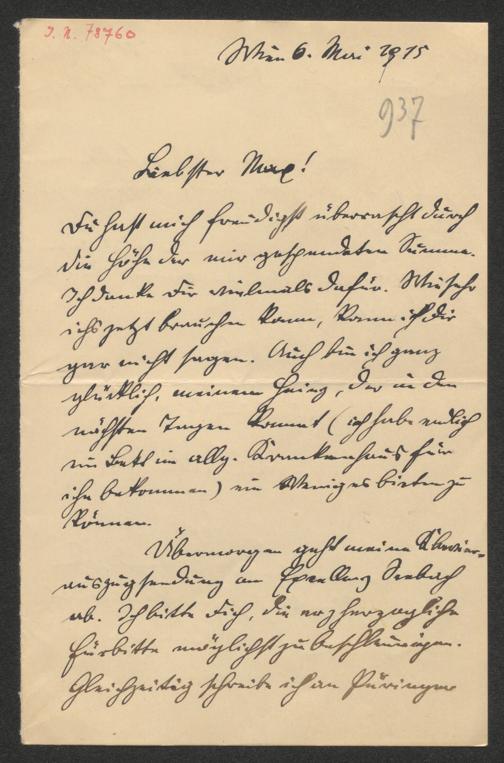 J. N. 78760
Wien 6. Mai 1915
937
Liebster Max!
Du hast mich freudigst überrascht durch
die Höhe der mir gespendeten Summe.
Ich danke Dir vielmals dafür. Wie sehr
ichs jetzt brauchen kann, kann ich Dir
gar nicht sagen. Auch bin ich ganz
glücklich, meinem Heinz, der in den
nächsten Tagen kommt (ich habe endlich
ein Bett im allg. Krankenhaus für
ihn bekommen) ein Weniges bieten zu
können.
Übermorgen geht meine Klavier-
auszugsendung an Exellenz Seebach
ab. Ich bitte Dich, die erzherzogliche
Fürbitte möglichst zu beschleunigen.
Gleichzeitig schreibe ich an